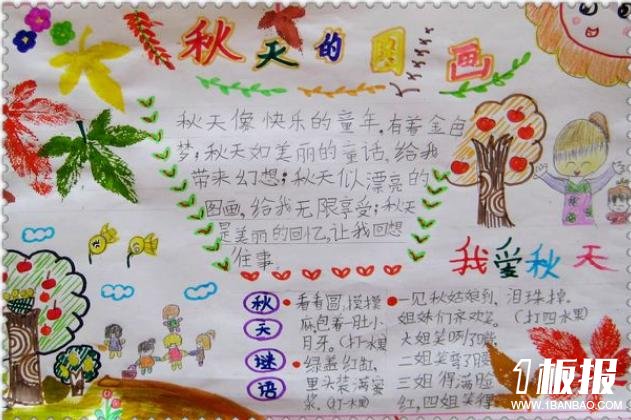 秋天的图画
秋天像快乐的童年,有着金色
梦;秋天如美丽的童话,给我
带来幻想;秋天似漂亮的
图画,给我无限享受;秋天
是美丽的回忆,让我回想
往事。
我爱秋天
秋天谜语
看着圆,摸摸
麻,包着一肚小
月牙。(打一水果
绿盖红缸,
里头装满蜜
浆。(打一水果)
一见秋姑娘到,
姐妹们齐欢笑。
大姐笑咧了嘴
二姐笑弯了腰
三姐得满脸
红,四姐笑得
泪珠掉。
(打四水果)
1板报
WWW.1BANBAO.COM